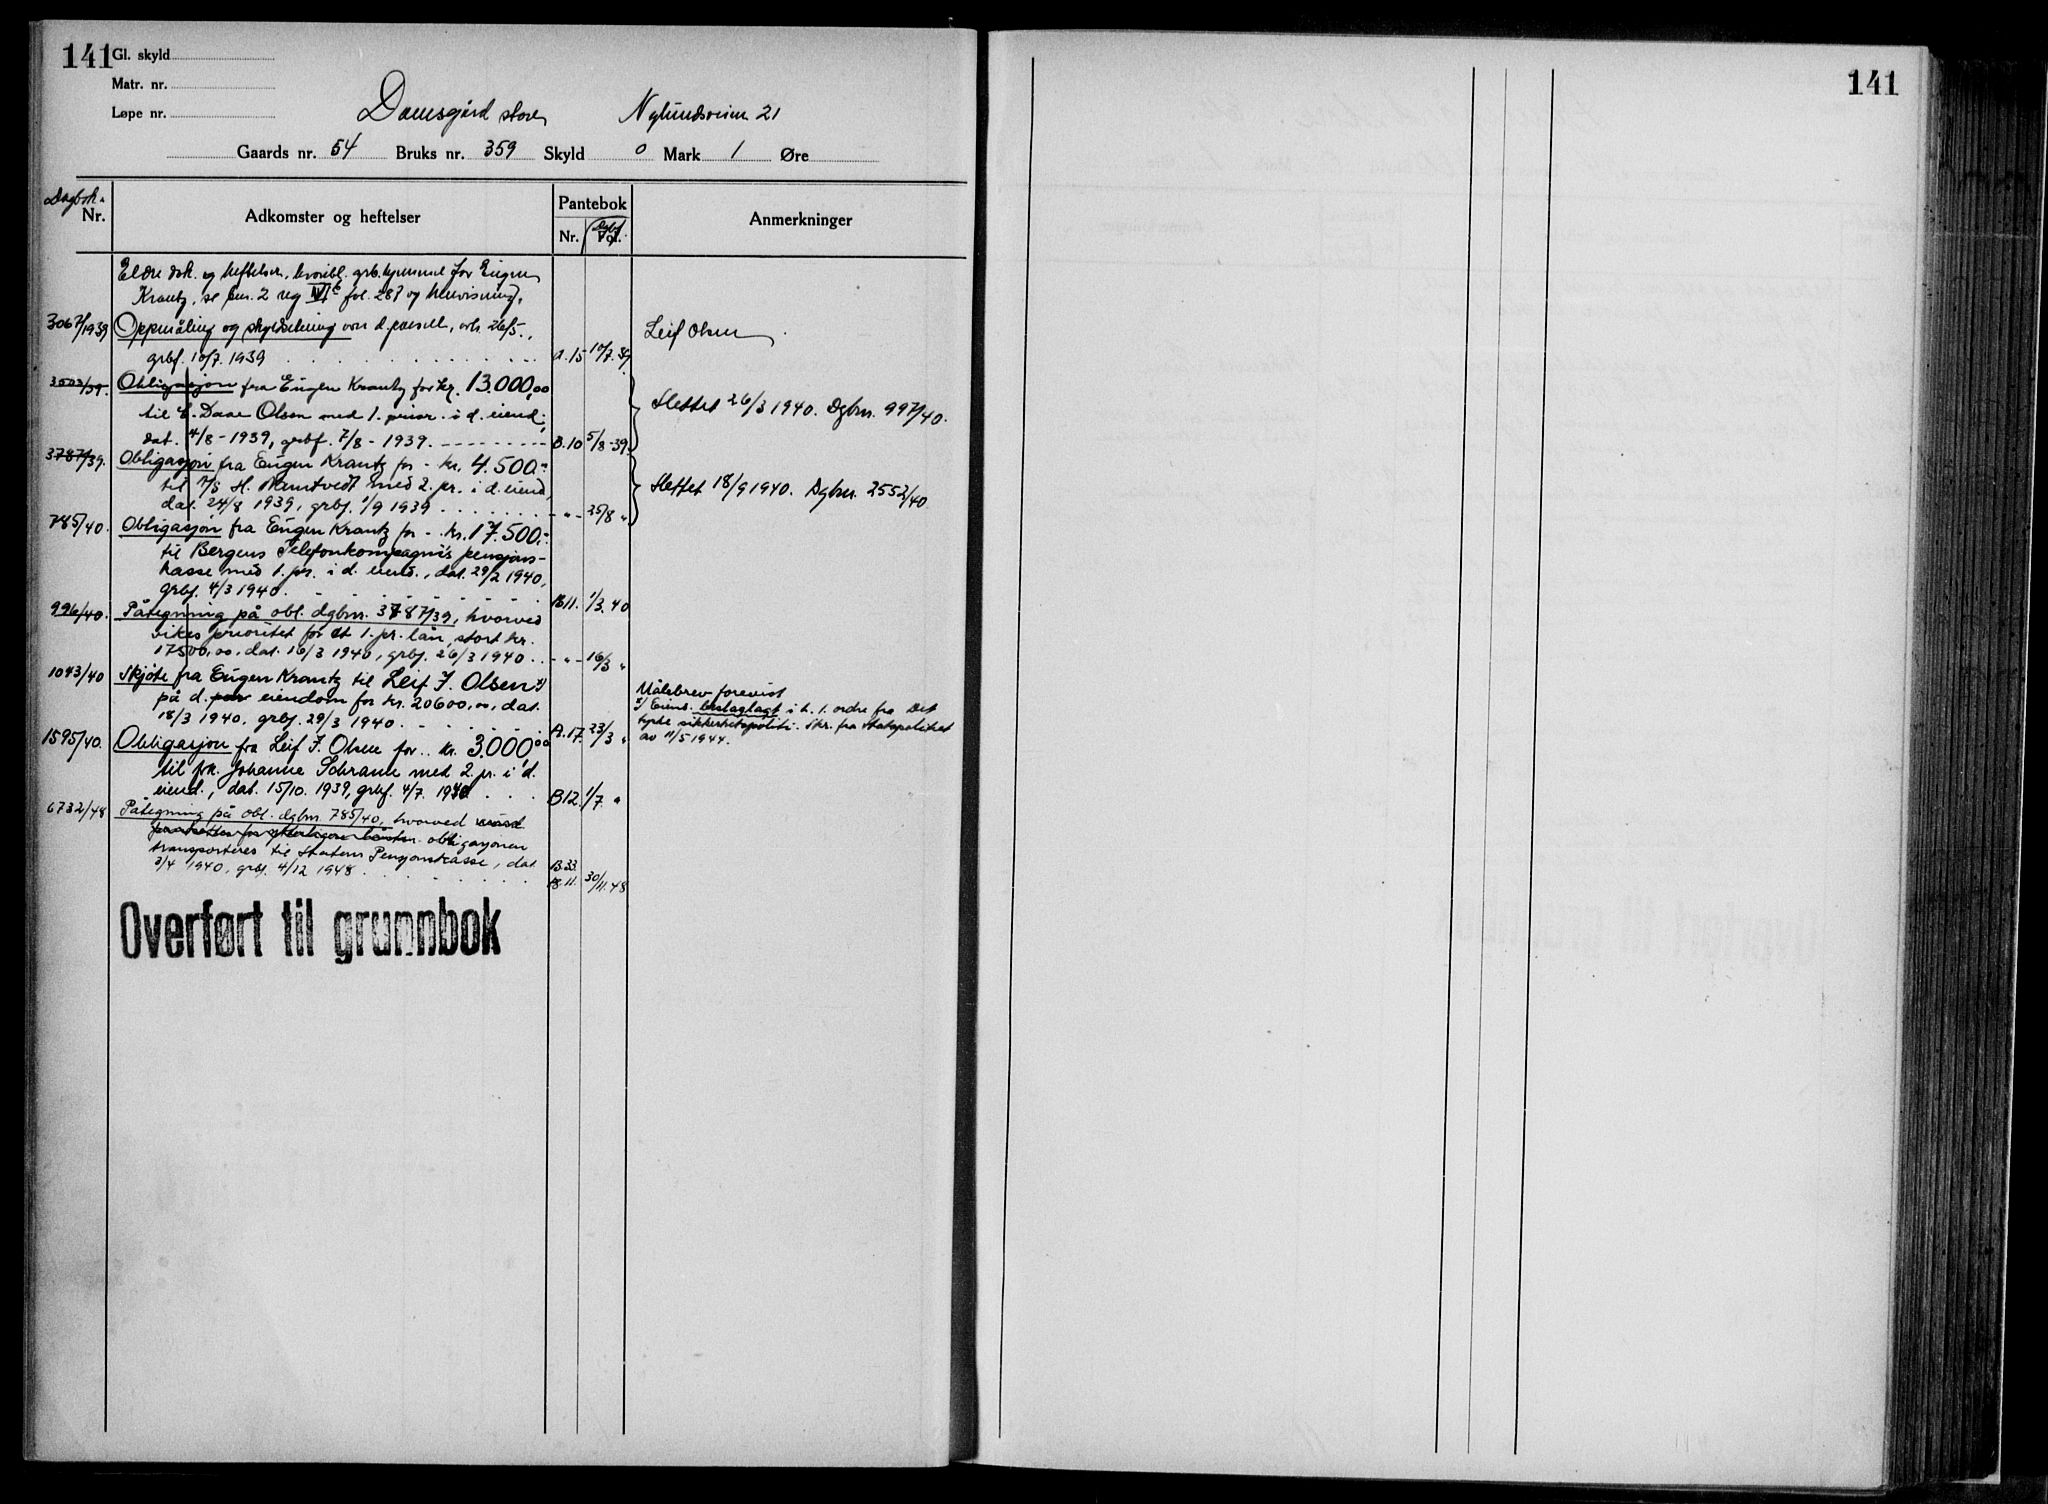 141 Gl. skyld
Matr. nr.
Løpe nr.
Damsgård store Nylundsveien 21
Gaards nr. 54 Bruks nr. 359 Skyld 0 Mark 1 Øre
Dagbok-
Nr.
Adkomster og heftelser
Pantebok
Nr. Dagb. Fol.
Anmerkninger
Eldre dok. og heftelser, hvoribl. grb.hjemmel for Eugen
Krantz, se 2 reg fol. 287 og henvisning.
3067/1939 Oppmåling og skyldsetning over d. parsell, avh. 26/5.,
grbf. 10/7. 1939 A.15 10/7.39
Leif Olsen
3503/39. Obligasjon fra Eugen Krantz for kr. 13.000,00
til E. Daae Olsen med 1. prior. i d. eiend.,
dat. 4/8-1939, grbf. 7/8-1939. B.10 5/8-39.
Slettet 26/3 1940. Dgbnr. 997/40.
3787/39. Obligasjon fra Eugen Krantz for - kr. 4.500.-
til A/S H. Namtvedt med 2. pr. i d. eiend,
dat. 24/8 1939, grbf. 1/9 1939 -"- 25/8 "
Slettet 18/9 1940. Dgbnr. 2552/40
785/40. Obligasjon fra Eugen Krantz for - kr. 17.500.-
til Bergens Telefonkompagnis pensjons-
kasse med 1. pr. i d. eiend., dat. 29/2 1940,
grbf. 4/3 1940. B.11. 1/3. 40
996/40. Påtegning på obl. dgbnr. 3787/39, hvorved
vikes prioritet for et 1. pr. lån, stort kr.
17500,00, dat. 16/3 1940, grbf. 26/3 1940. -"- 16/3 "
1043/40 Skjøte fra Eugen Krantz til Leif J. Olsen x)
på d. par eiendom for kr. 20600,00, dat.
18/3 1940, grbf. 29/3 1940. A.17. 23/3 "
Målebrev forevist
x) Eiend. beslaglagt i h. t. ordre fra Det
tyske sikkerhetspoliti. Skr. fra Statspolitiet
av 11/5 1944.
1595/40. Obligasjon fra Leif J. Olsen for .. kr. 3.000,00
til frk. Johanne Schram med 2. pr. i d.
eiend., dat. 15/10. 1939, grbf. 4/7. 1940 B12. 1/7. "
6732/48 Påtegning på obl. dgbnr. 785/40, hvorved
obligasjonen
transporteres til Statens Pensjonskasse, dat.
3/4 1940, grbf. 4/12 1948 B.33.
B.11. 30/11.48
Overført til grunnbok
141